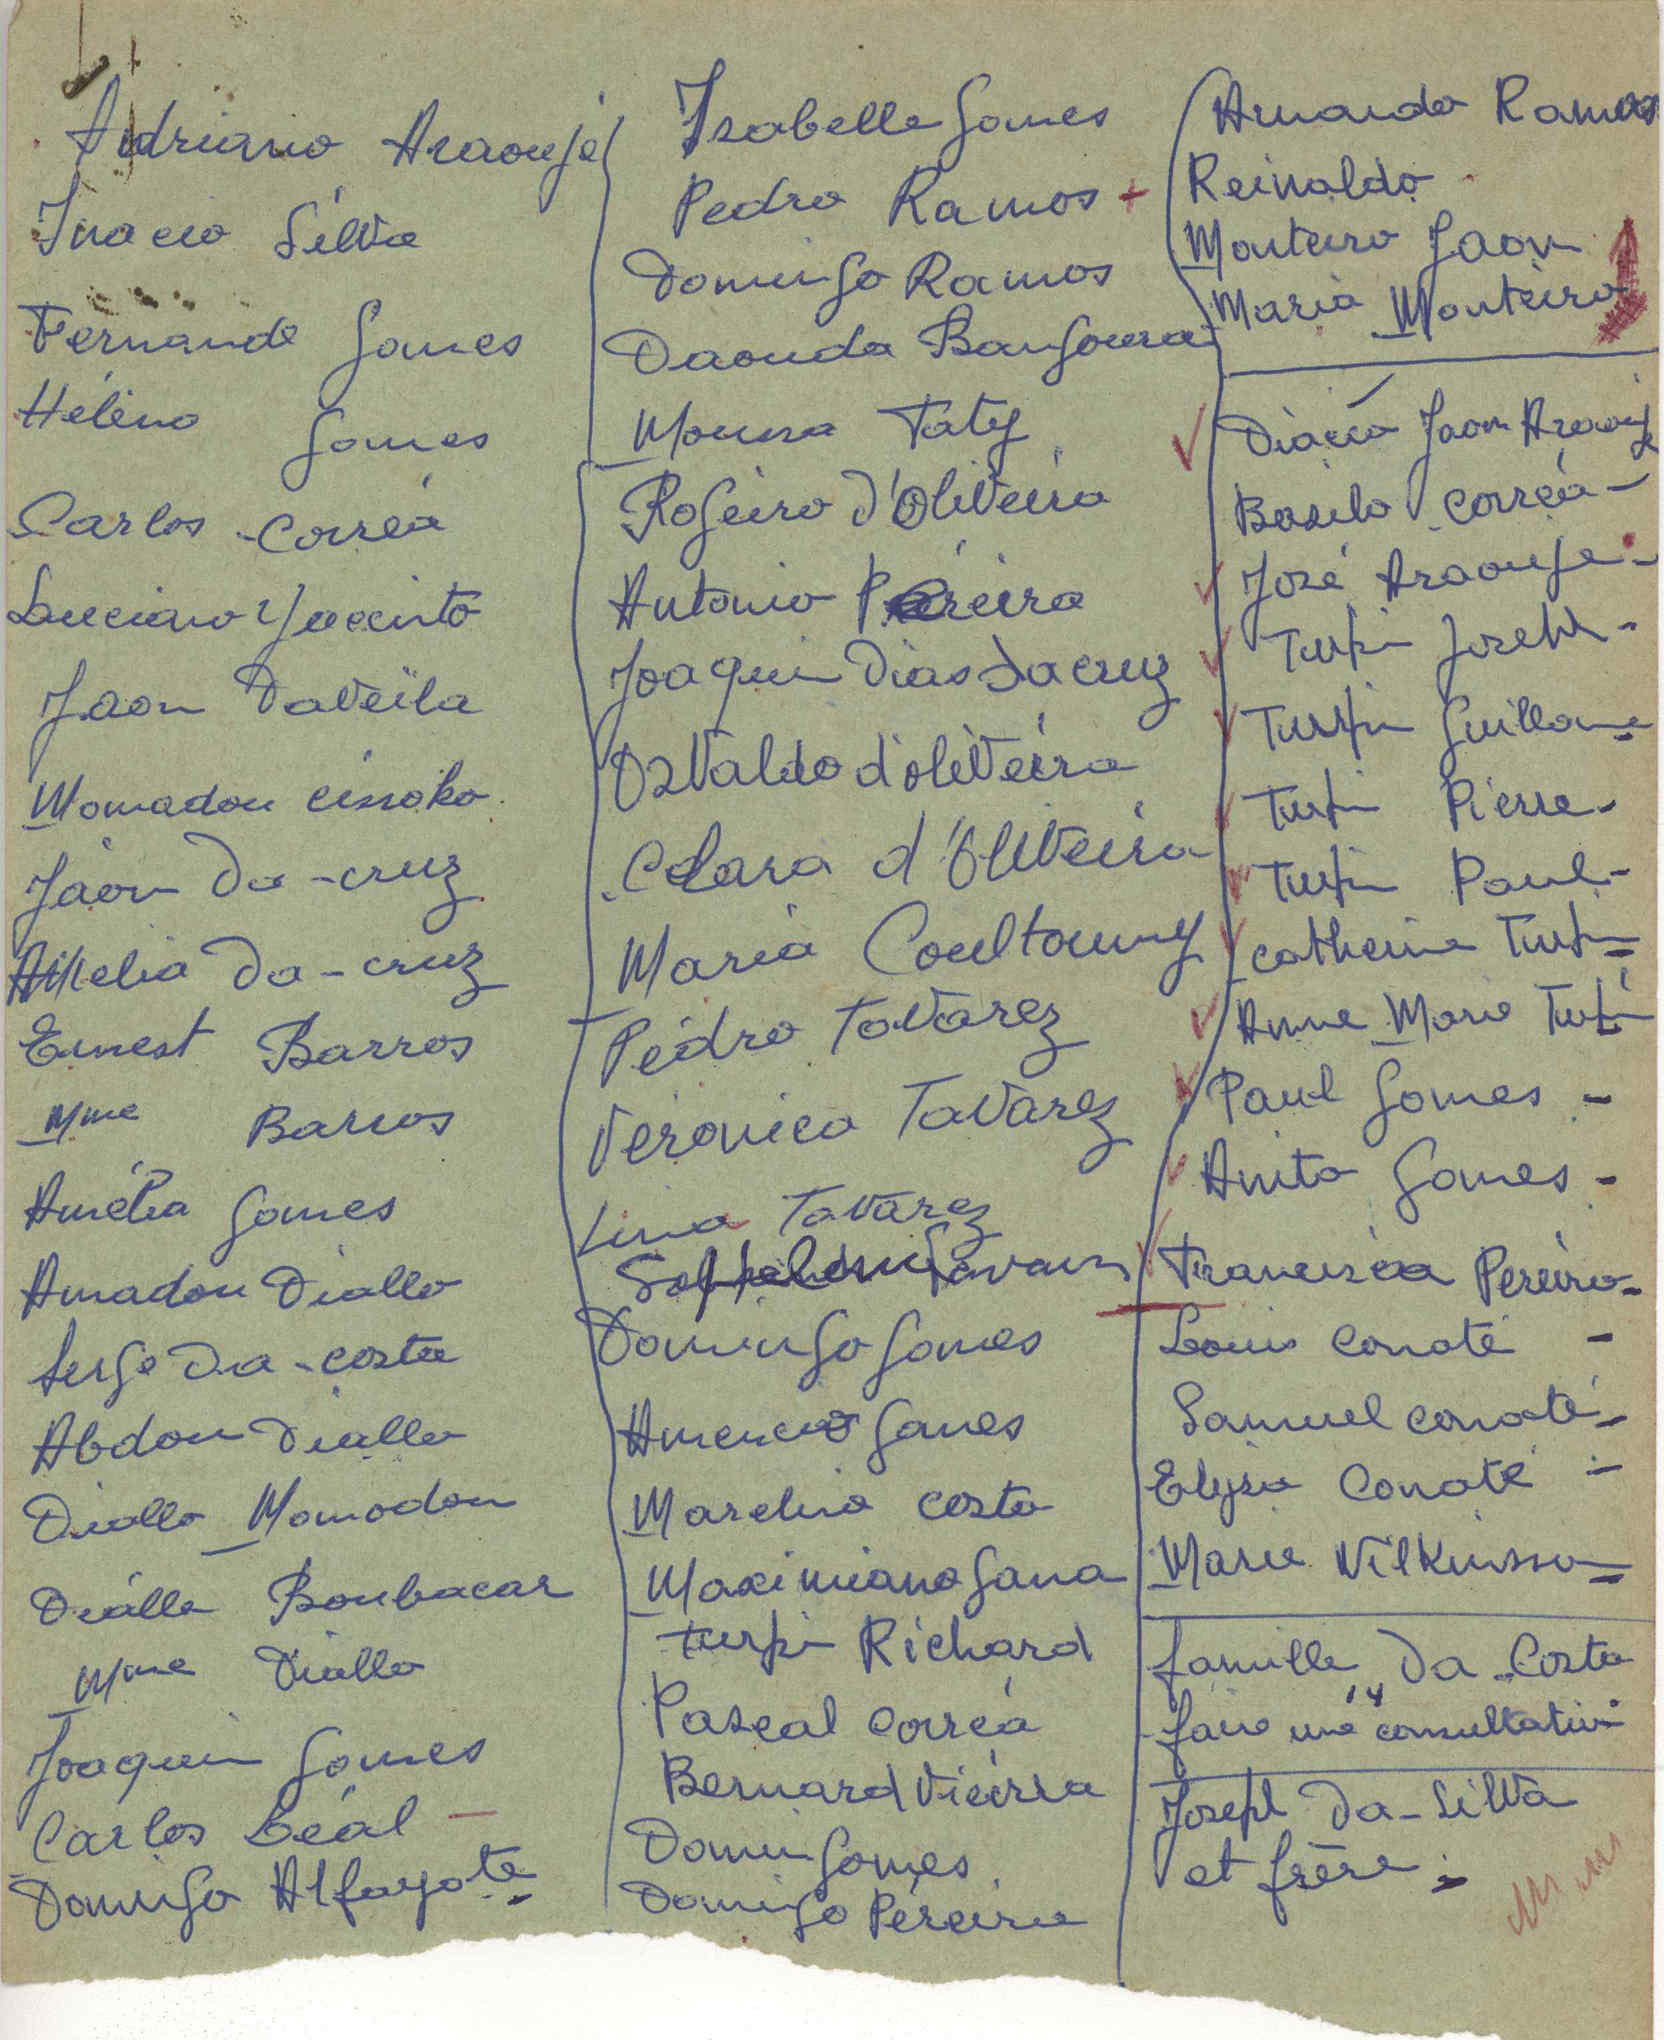 Adriano Araoujo
Inacio Silva
Fernande Gomes
Hélèno Gomes
Carlos Corréa
Luciano Yaccinto
Jaon Daveila
Mamadou Cissoko
Jaon Da-cruz
Amelia Da-cruz
Ernest Barros
Mme Barros
Amélia Gomes
Amadou Diallo
Serge Da-costa
Abdou Diallo
Diallo Mamadou
Diallo Boubacar
Mme Diallo
Joaquin Gomes
Carlos Léal
Domingo Alfayate
Isabelle Gomes
Pedro Ramos +
Domingo Ramos
Daouda Bangoura
Moussa Taty
Rogeiro d'Oliveira
Antonio Péreira
Joaquin Dias Dacruz
Osvaldo d'oliveira
Clara d'Oliveira
Maria Coultoumy
Pédro Tavarez
Véronica Tavarez
Lina Tavarez
Domingo Gomes
Gomes
Marelino Costa
Maximiano Gana
Turpin Richard
Pascal Corréa
Bernard Vieirra
Domingomes
Domingo Péreira
Armando Ramos
Reinaldo
Monteiro Jaon
Maria Monteiro
Jaon
Basilo Corréa -
José Araouje -
Turpin Joseph -
Turpin Guillaume
Turpin Pierre -
Turpin Paul -
Catherine Turpin
Anne Marie Turpin
Paul Gomes -
Anita Gomes -
Francisca Pereira -
Louis Conaté -
Samuel Conaté -
Elysa Conaté -
Marie Vilkinsson
famille Da-Costa
faire une consultation
Joseph Da-Silva
et frère -